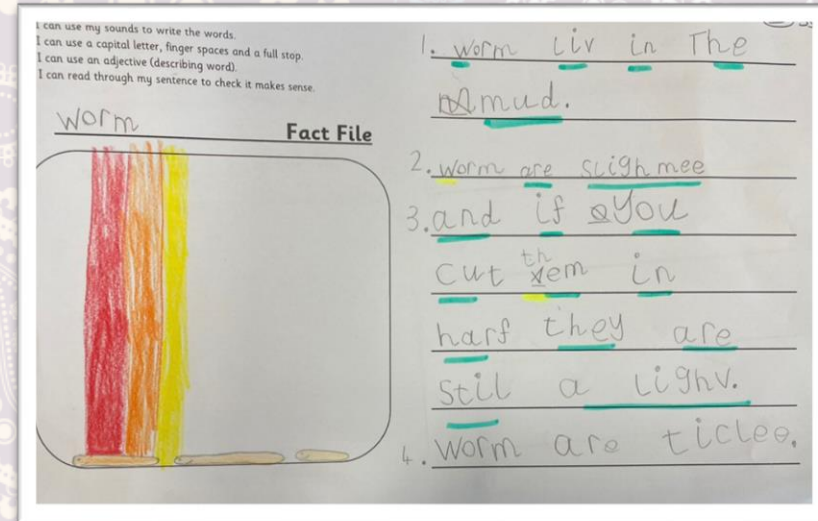 I can use my sounds to write the words.
I can use a capital letter, finger spaces and a full stop.
I can use an adjective (describing word).
I can read through my sentence to check it makes sense.
worm Fact File
1. worm Liv in The
mud.
2. worm are sligh mee
3. and if you
cut them in
harf they are
Stil a Lighv.
4. worm are ticlee.